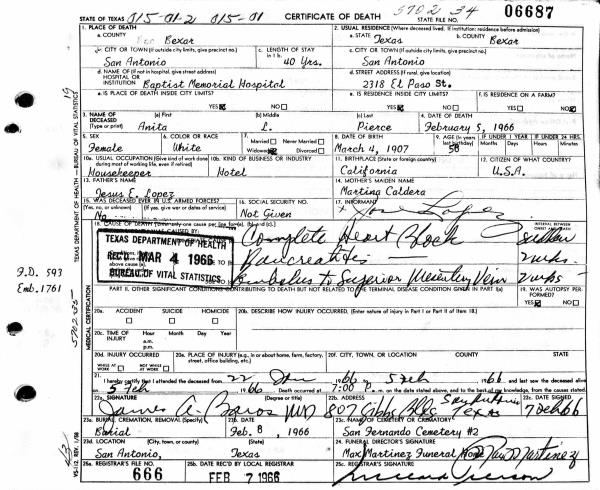 STATE OF TEXAS 015-01-2 015-01 CERTIFICATE OF DEATH 5702 34 STATE FILE NO. 06687
1. PLACE OF DEATH
a. COUNTY Bexar
2. USUAL RESIDENCE (Where deceased lived. If institution: residence before admission)
a. STATE Texas b. COUNTY Bexar
b. CITY OR TOWN (If outside city limits, give precinct no.) San Antonio
c. LENGTH OF STAY in 1 b. 40 Yrs.
c. CITY OR TOWN (If outside city limits, give precinct no.) San Antonio
d. NAME OF (If not in hospital, give street address) HOSPITAL OR INSTITUTION Baptist Memorial Hospital
d. STREET ADDRESS (If rural, give location) 2318 El Paso St.
e. IS PLACE OF DEATH INSIDE CITY LIMITS? YES NO
e. IS RESIDENCE INSIDE CITY LIMITS? YES NO
f. IS RESIDENCE ON A FARM? YES NO
3. NAME OF DECEASED (Type or print) (a) First Anita (b) Middle L. (c) Last Pierce
4. DATE OF DEATH February 5, 1966
5. SEX Female
6. COLOR OR RACE White
7. Married Never Married Widowed Divorced
8. DATE OF BIRTH March 4, 1907
9. AGE (In years last birthday) 58
IF UNDER 1 YEAR Months Days
IF UNDER 24 HRS. Hours Min.
10a. USUAL OCCUPATION (Give kind of work done during most of working life, even if retired) Housekeeper
10b. KIND OF BUSINESS OR INDUSTRY Hotel
11. BIRTHPLACE (State or foreign country) California
12. CITIZEN OF WHAT COUNTRY? U.S.A.
13. FATHER'S NAME Jesus E. Lopez
14. MOTHER'S MAIDEN NAME Martina Caldera
15. WAS DECEASED EVER IN U.S. ARMED FORCES? (Yes, no, or unknown) (If yes, give war or dates of service) No
16. SOCIAL SECURITY NO. Not Given
17. INFORMANT Lopez
18. CAUSE OF DEATH [Enter only one cause per line for (a), (b), and (c).]
INTERVAL BETWEEN ONSET AND DEATH
TEXAS DEPARTMENT OF HEALTH
REC'D MAR 4 1966
BUREAU OF VITAL STATISTICS
Complete Heart Block sudden
Pancreatitis 2 wks.
Embolus to Superior Mesentery Vein 2 wks
PART II. OTHER SIGNIFICANT CONDITIONS CONTRIBUTING TO DEATH BUT NOT RELATED TO THE TERMINAL DISEASE CONDITION GIVEN IN PART I(a)
19. WAS AUTOPSY PERFORMED? YES NO
20a. ACCIDENT SUICIDE HOMICIDE
20b. DESCRIBE HOW INJURY OCCURRED. (Enter nature of injury in Part I or Part II of item 18.)
20c. TIME OF INJURY Hour Month Day Year
a.m.
p.m.
20d. INJURY OCCURRED WHILE AT WORK NOT WHILE AT WORK
20e. PLACE OF INJURY (e.g., in or about home, farm, factory, street, office building, etc.)
20f. CITY, TOWN, OR LOCATION COUNTY STATE
21. I hereby certify that I attended the deceased from 22 Jan 1966 to 5 Feb 1966 and last saw the deceased alive
on 5 Feb 1966 Death occurred at 7:00 P. m. on the date stated above, and to the best of my knowledge, from the causes stated.
22a. SIGNATURE (Degree or title) James A. Baros MD
22b. ADDRESS 807 Gibbs Bldg San Antonio Texas
22c. DATE SIGNED 7 Feb 66
23a. BURIAL, CREMATION, REMOVAL (Specify) Burial
23b. DATE Feb. 8, 1966
23c. NAME OF CEMETERY OR CREMATORY San Fernando Cemetery #2
23d. LOCATION (City, town, or county) (State) San Antonio, Texas
24. FUNERAL DIRECTOR'S SIGNATURE Max Martinez Funeral Home Martinez
25a. REGISTRAR'S FILE NO. 666
25b. DATE REC'D BY LOCAL REGISTRAR FEB 7 1966
25c. REGISTRAR'S SIGNATURE
TEXAS DEPARTMENT OF HEALTH—BUREAU OF VITAL STATISTICS
MEDICAL CERTIFICATION
VS-112 REV. 1/58
F.D. 593
Emb. 1761